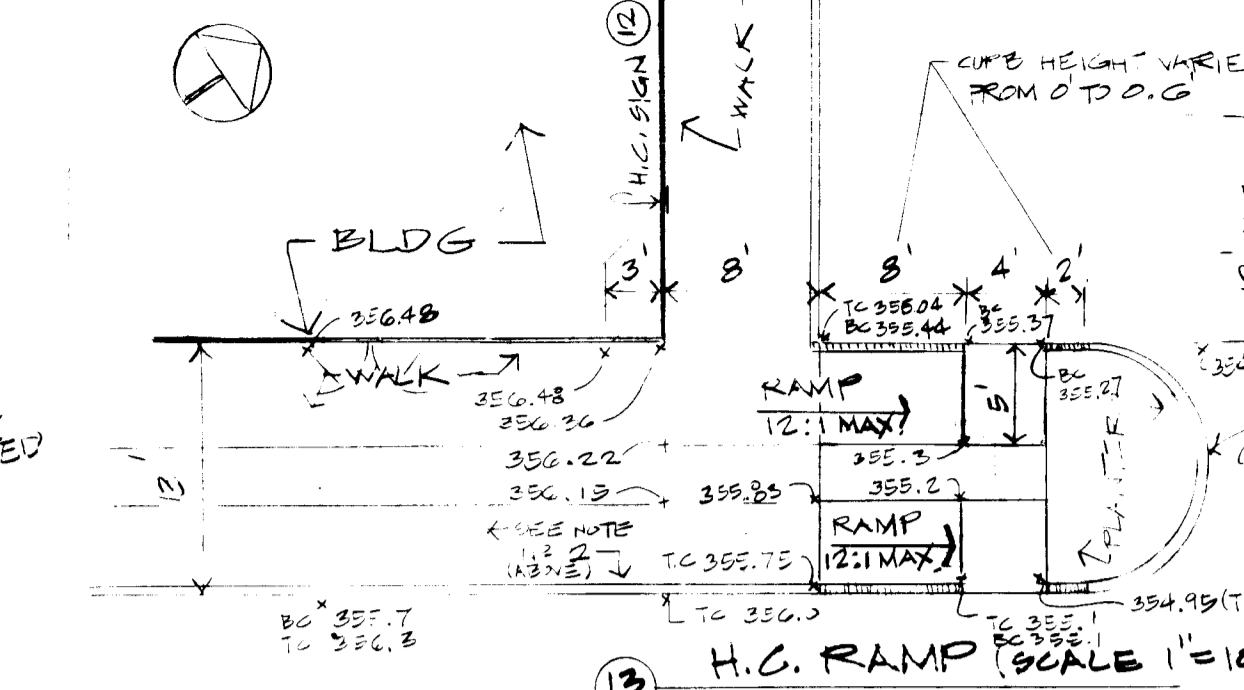 12
H.C. SIGN
WALK
CURB HEIGHT VARIE
FROM 0' TO 0.6'
BLDG
3'
8'
8'
4'
2'
356.48
TC 356.04
BC 355.44
BC
355.37
WALK
356.48
356.36
BC
355.27
RAMP
12:1 MAX.
5'
ED
13'
356.22
355.3
356.15
355.83
355.2
PLANTER
← SEE NOTE
1 & 2
(ABOVE)
RAMP
12:1 MAX.
TC 355.75
BC 355.7
TC 356.3
TC 356.0
TC 355.1
BC 355.1
354.95 (T
13
H.C. RAMP (SCALE 1"=10